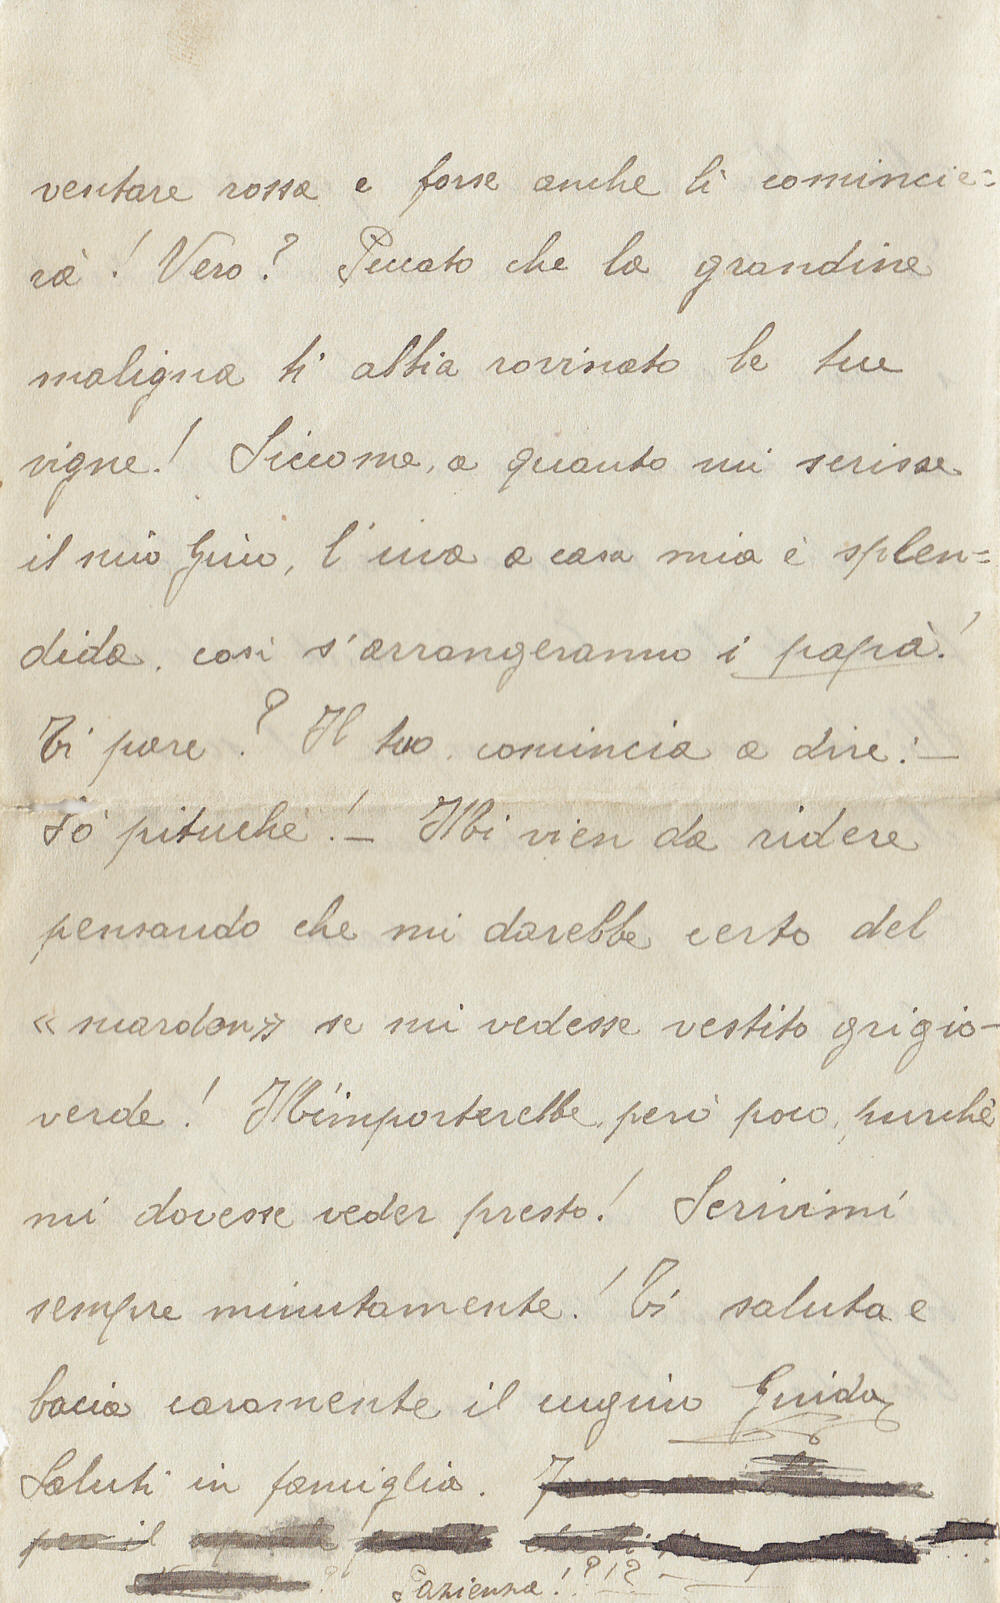 ventare rossa e forse anche lì comincie=
rà! Vero? Peccato che la grandine
maligna ti abbia rovinato le tue
vigne! Siccome, a quanto mi scrisse
il mio Gino, l'uva a casa mia è splen=
dida, così s'arrangeranno i papà!
Ti pare? Il tuo comincia a dire: –
Tö pituché! – Mi vien da ridere
pensando che mi darebbe certo del
«mardan» se mi vedesse vestito grigio-
verde! M'importerebbe, però poco, purchè
mi dovesse veder presto! Scrivimi
sempre minutamente! Ti saluta e
bacia caramente il cugino Guido
Saluti in famiglia.
per il
Pazienza!?!?